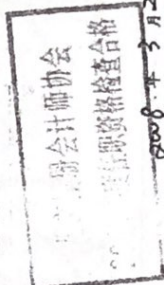 册会计师协会
任职资格检查合格
2008年3月2